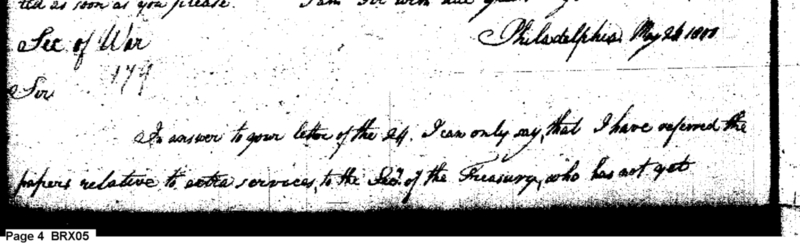 ted as soon as you please. I am Sir with due
Sec. of War Philadelphia May 26 1800
179
Sir
In answer to your letter of the 24. I can only say, that I have referred the
papers relative to extra services, to the Secy. of the Treasury, who has not yet
Page 4 BRX05